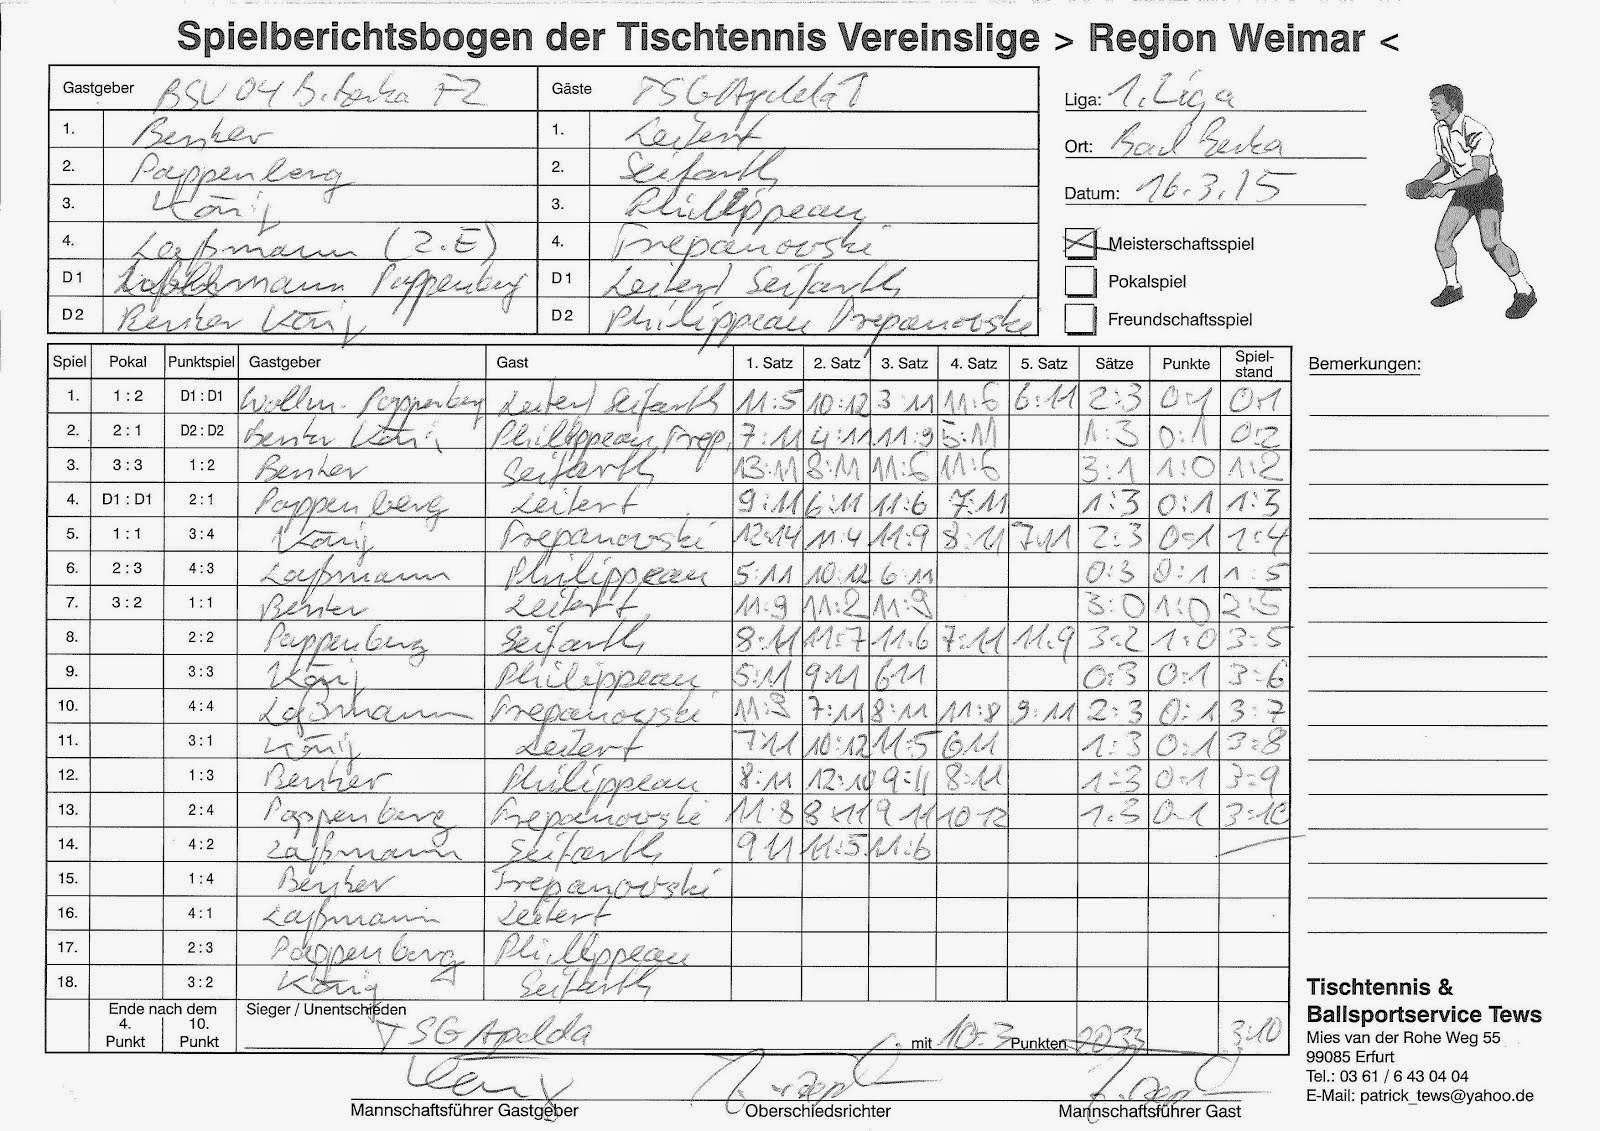 Spielberichtsbogen der Tischtennis Vereinslige > Region Weimar <
Gastgeber BSV 04 B. Berka Gäste TSG Apolda
1. Benker 1. Leitert
2. Pappenberg 2. Seifarth
3. König 3. Philippeau
4. Laßmann (2.E) 4. Trepanowski
D1 Pappenberg D1 Leitert Seifarth
D2 Benker König D2 Philippeau Trepanowski
Liga: 1. Liga
Ort: Bad Berka
Datum: 16.3.15
Meisterschaftsspiel
Pokalspiel
Freundschaftsspiel
Spiel Pokal Punktspiel Gastgeber Gast 1. Satz 2. Satz 3. Satz 4. Satz 5. Satz Sätze Punkte Spiel-stand
1. 1:2 D1:D1 Wollm. Pappenberg Leitert Seifarth 11:5 10:12 3 11 11:6 6:11 2:3 0:1 0:1
2. 2:1 D2:D2 Benker König Philippeau Trep. 7:11 4:11 11:9 5:11 1:3 0:1 0:2
3. 3:3 1:2 Benker Seifarth 13:11 8:11 11:6 11:6 3:1 1:0 1:2
4. D1:D1 2:1 Pappenberg Leitert 9:11 6:11 11:6 7:11 1:3 0:1 1:3
5. 1:1 3:4 König Trepanowski 12:14 11:4 11:9 8:11 7:11 2:3 0:1 1:4
6. 2:3 4:3 Laßmann Philippeau 5:11 10:12 6:11 0:3 0:1 1:5
7. 3:2 1:1 Benker Leitert 11:9 11:2 11:9 3:0 1:0 2:5
8. 2:2 Pappenberg Seifarth 8:11 11:7 11:6 7:11 11:9 3:2 1:0 3:5
9. 3:3 König Philippeau 5:11 9:11 6 11 0:3 0:1 3:6
10. 4:4 Laßmann Trepanowski 11:9 7:11 8:11 11:8 9:11 2:3 0:1 3:7
11. 3:1 König Leitert 7:11 10:12 11:5 6 11 1:3 0:1 3:8
12. 1:3 Benker Philippeau 8:11 12:10 9:11 8:11 1:3 0:1 3:9
13. 2:4 Pappenberg Trepanowski 11:8 8:11 9 11 10 12 1:3 0:1 3:10
14. 4:2 Laßmann Seifarth 9 11 11:5 11:6
15. 1:4 Benker Trepanowski
16. 4:1 Laßmann Leitert
17. 2:3 Pappenberg Philippeau
18. 3:2 König Seifarth
Ende nach dem
4. Punkt 10. Punkt
Sieger / Unentschieden
TSG Apolda mit 10:3 Punkten 3:10
Mannschaftsführer Gastgeber Oberschiedsrichter Mannschaftsführer Gast
Bemerkungen:
Tischtennis &
Ballsportservice Tews
Mies van der Rohe Weg 55
99085 Erfurt
Tel.: 03 61 / 6 43 04 04
E-Mail: patrick_tews@yahoo.de